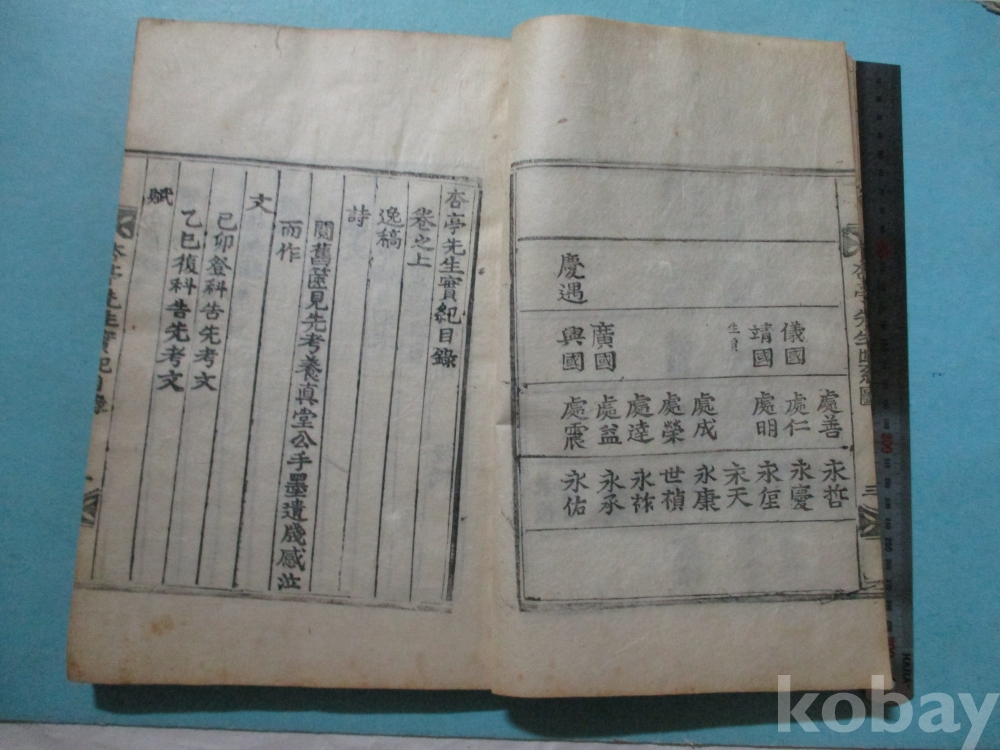 慶遇
儀國
靖國
生員
廣國
興國
處善
處仁
處明
處成
處榮
處達
處益
處震
永哲
永慶
永垕
永天
永康
世禎
永祚
永承
永佑
杏亭先生世系圖
三
杏亭先生實紀目錄
卷之上
逸稿
詩
閱舊篋見先考養眞堂公手墨遺箋感泣
而作
文
己卯登科告先考文
乙巳復科告先考文
賦
杏亭先生實紀目錄
kobay